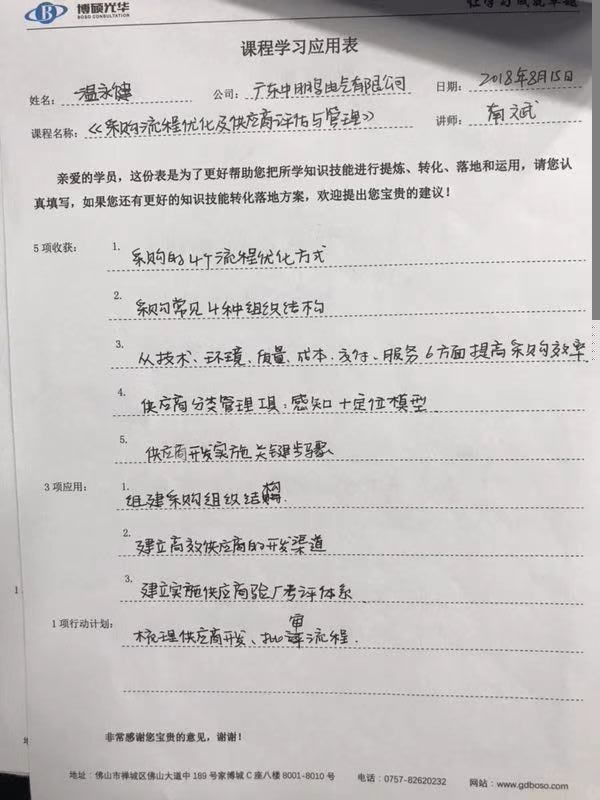 博硕光华
BOSO CONSULTATION
课程学习应用表
姓名： 温永健 公司： 广东中鹏电气有限公司 日期： 2018年8月15日
课程名称：《采购流程优化及供应商评估与管理》 讲师： 南文武
亲爱的学员，这份表是为了更好帮助您把所学知识技能进行提炼、转化、落地和运用，请您认
真填写，如果您还有更好的知识技能转化落地方案，欢迎提出您宝贵的建议！
5项收获： 1. 采购的4个流程优化方式
2. 采购常见4种组织结构
3. 从技术、环境、质量、成本、交付、服务6方面提高采购效率
4. 供应商分类管理工具：感知+定位模型
5. 供应商开发实施关键步骤
3项应用： 1. 组建采购组织结构.
2. 建立高效供应商的开发渠道
3. 建立实施供应商验厂考评体系
1项行动计划： 梳理供应商开发、批审流程.
非常感谢您宝贵的意见，谢谢！
地址：佛山市禅城区佛山大道中189号家博城C座八楼8001-8010号 电话：0757-82620232 网站：www.gdboso.com